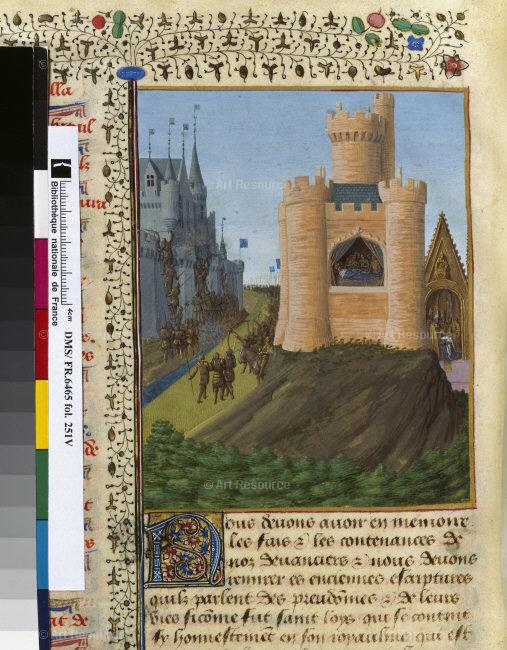 lla
ura
Bibliothèque nationale de France
4cm
DMS/ FR.6465 fol. 251V
© Art Resource
© Art Resource
© Art Resource
Nous devons avoir en memoire
les fais & les contenances de
noz devanciers & nous devons
remirer es enciennes escriptures
qui parlent des preudommes & de leurs
vies sicome fut saint loys qui se contint
sy honnestement en son royaulme qui est
de